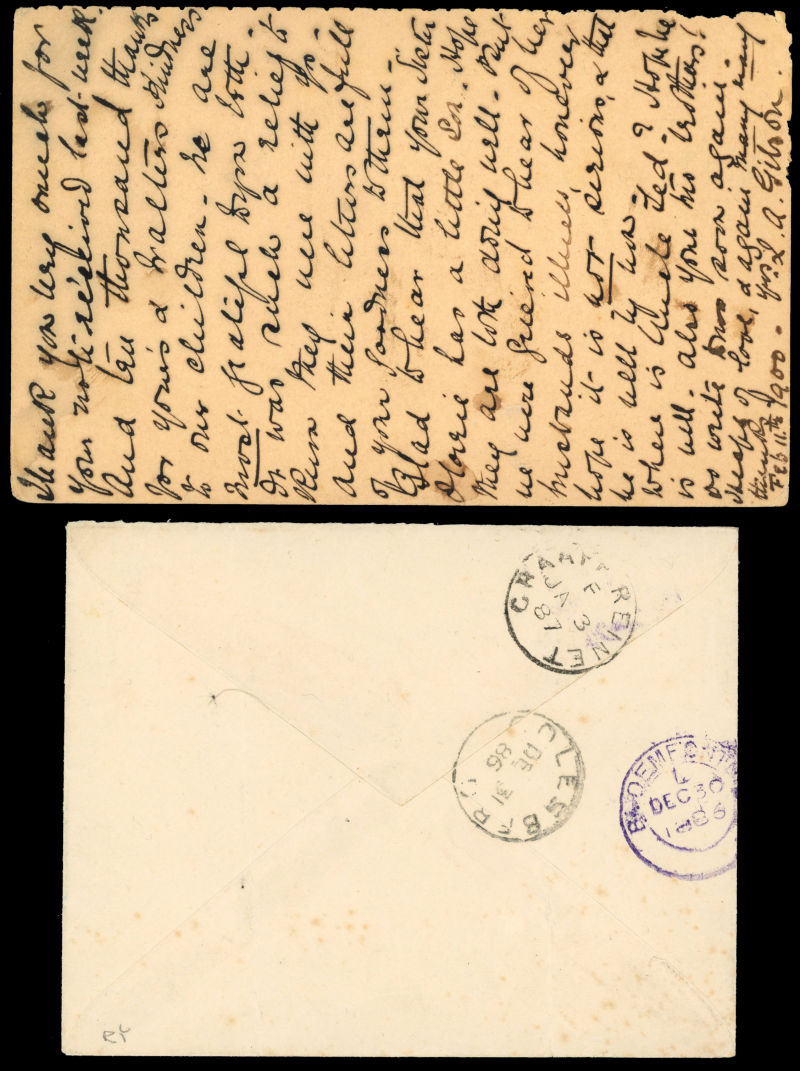 Thank you very much for
your note received last week.
And ten thousand thanks
for yours & Walters kindness
to our children. We are
most grateful to you both.
It was such a relief to
know they were with you.
and their letters are full
of your goodness to them.
Glad to hear that your Sister
has a little Son. Hope
they are both doing well. But
we were grieved to hear of her
husbands illness, however
hope it is not serious, & that
he is well by now.
Where is Uncle Ted? Hope he
is well. also your brothers?
write soon again.
Heaps of love, & again many many
thanks yrs L. A. Gibson.
Feb 11th 1900.
GRAAFF REINET
F
JA 3
87
COLESBERG
DE 31
86
BLOEMFONTEIN
L
DEC 30
1886